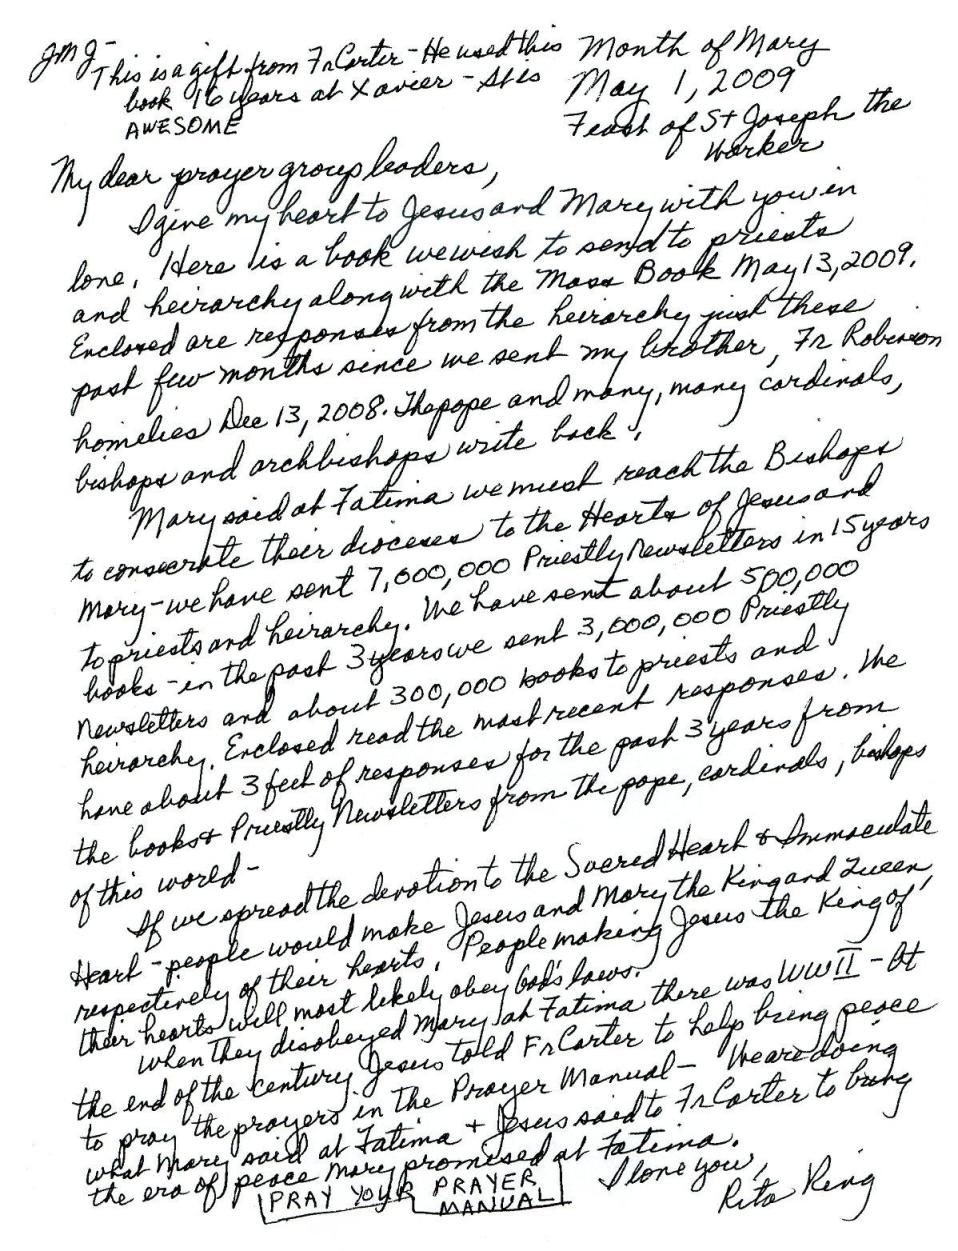 JMJ-
This is a gift from Fr Carter - He used this
book 16 years at Xavier - It is
AWESOME
Month of Mary
May 1, 2009
Feast of St Joseph the
Worker
My dear prayer group leaders,
I give my heart to Jesus and Mary with you in
love. Here is a book we wish to send to priests
and heirarchy along with the Mass Book May 13, 2009.
Enclosed are responses from the heirarchy just these
past few months since we sent my brother, Fr Robinson
homelies Dec 13, 2008. The pope and many, many cardinals,
bishops and archbishops write back.
Mary said at Fatima we must reach the Bishops
to consecrate their dioceses to the Hearts of Jesus and
Mary - we have sent 7,000,000 Priestly Newsletters in 15 years
to priests and heirarchy. We have sent about 500,000
books - in the past 3 years we sent 3,000,000 Priestly
Newsletters and about 300,000 books to priests and
heirarchy. Enclosed read the most recent responses. We
have about 3 feet of responses for the past 3 years from
the books + Priestly Newsletters from the pope, cardinals, bishops
of this world -
If we spread the devotion to the Sacred Heart & Immaculate
Heart - people would make Jesus and Mary the King and Queen,
respectively of their hearts. People making Jesus the King of
their hearts will most likely obey God's laws.
When they disobeyed Mary at Fatima there was WWII - At
the end of the century Jesus told Fr Carter to help bring peace
to pray the prayers in the Prayer Manual - We are doing
what Mary said at Fatima + Jesus said to Fr Carter to bring
the era of peace Mary promised at Fatima.
PRAY YOUR PRAYER
MANUAL
I love you,
Rita Ring